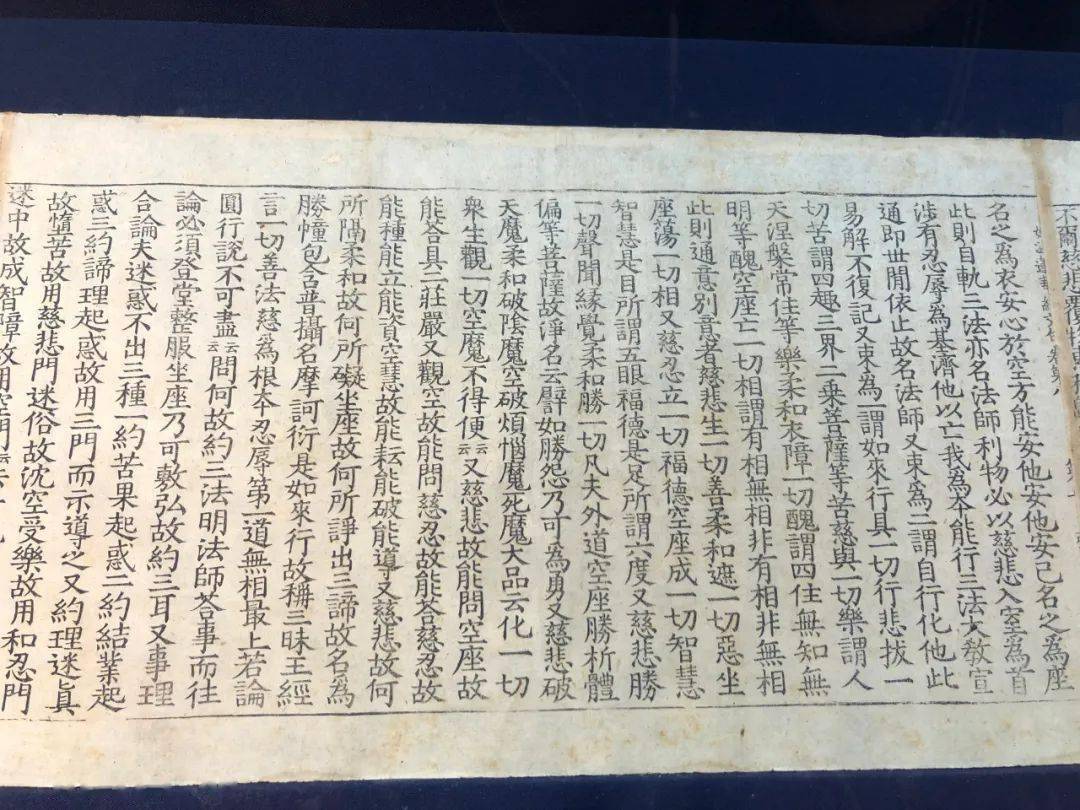 不爾
名之爲衣安心於空方能安他安己名之爲座
此則目軌三法亦名法師利物必以慈悲入室爲首
涉有忍辱為基濟他以亡我爲本能行三法大教宣
通即世間依止故名法師又束爲二謂自行化他此
易解不復記又束為一謂如來行具一切行悲拔一
切苦謂四趣三界二乗菩薩等苦慈與一切樂謂人
天涅槃常住等樂柔和衣障一切醜謂四住無知無
明等醜空座亡一切相謂有相無相非有相非無相
此則通意別意者慈悲生一切善柔和遮一切惡坐
座蕩一切相又慈忍立一切福德空座成一切智慧
智慧是目所謂五眼福德是足所謂六度又慈悲勝
一切聲聞緣覺柔和勝一切凡夫外道空座勝析體
偏等菩薩故淨名云譬如勝怨乃可為勇又慈悲破
天魔柔和破陰魔空破煩惱魔死魔大品云化一切
衆生觀一切空魔不得便云云又慈悲故能問空座故
能荅具二莊嚴又觀空故能問慈忍故能荅慈忍故
能種能立能資空慧故能耘能破能導又慈悲故何
所隔柔和故何所礙坐座故何所諍出三諦故名爲
勝幢包含普攝名摩訶衍是如來行故稱三昧王經
言一切善法慈爲根本忍辱第一道無相最上若論
圓行說不可盡云云問何故約三法明法師荅事而往
論必須登堂整服坐座乃可敷弘故約三耳又事理
合論夫迷惑不出三種一約苦果起惑二約結業起
惑三約諦理起惑故用三門而示導之又約理迷眞
故墮苦故用慈悲門迷俗故沈空受樂故用和忍門
迷中故成智障故用空門云云